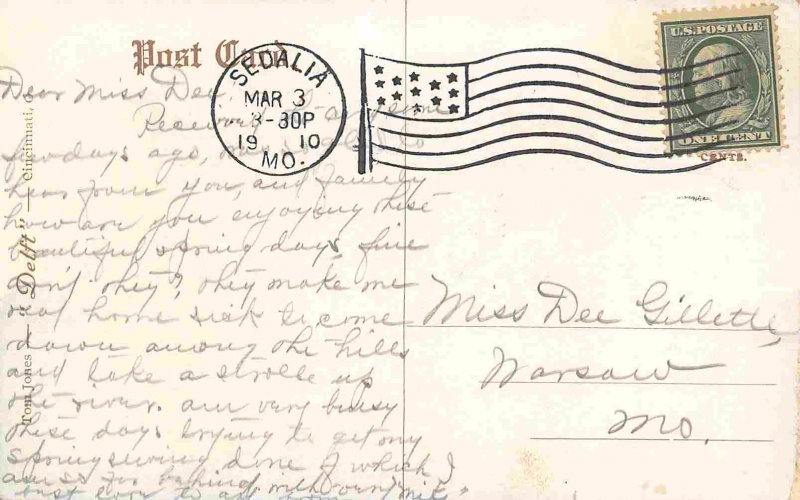 Post Card
SEDALIA
MAR 3
3-30P
1910
MO.
U.S. POSTAGE
ONE CENT
CENTS.
Dear Miss Dee
Received
few days ago, was glad to
hear from you, and family
how are you enjoying these
beautiful spring days fine
don't they? they make me
real home sick to come
down among the hills
and take a strole up
the river. am very busy
these days trying to get my
spring sewing done of which I
am so far behind with
Miss Dee Gillette,
Warsaw
Mo.
Tom Jones — "Delft" — Cincinnati, O.